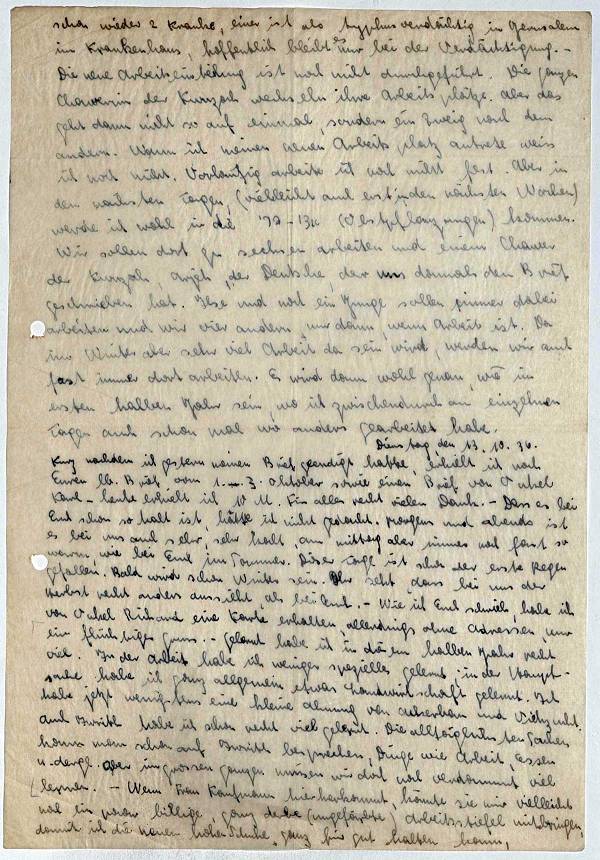 schon wieder 2 Kranke, einer ist als typhusverdächtig in Jerusalem
im Krankenhaus, hoffentlich bleibt es nur bei der Verdächtigung. -
Die neue Arbeitseinteilung ist noch nicht durchgeführt. Die ganzen
Chawerim der Kwuzah wechseln ihre Arbeitsplätze. Aber das
geht dann nicht so auf einmal, sondern ein Zweig nach dem
andern. Wann ich meinen neuen Arbeitsplatz antrete weiss
ich noch nicht. Vorläufig arbeite ich noch nicht fest. Aber in
den nächsten Tagen, (vielleicht auch erst in den nächsten Wochen)
werde ich wohl in die (Obstpflanzungen) kommen.
Wir sollen dort zu sechsen arbeiten und einem Chawer
der Kwuzah, Arjeh, der Deutsche, der uns damals den Brief
geschrieben hat. Ilse und noch ein Junge sollen immer dabei
arbeiten und wir vier andern, nur dann, wenn Arbeit ist. Da
im Winter aber sehr viel Arbeit da sein wird, werden wir auch
fast immer dort arbeiten. Es wird dann wohl genau, wie im
ersten halben Jahr sein, wo ich zwischendurch an einzelnen
Tagen auch schon mal wo anders gearbeitet habe.
Dienstag den 13.10.36.
Kurz nachdem ich gestern meinen Brief geendigt hatte, erhielt ich noch
Euren lb. Brief vom 1.-3. Oktober sowie einen Brief von Onkel
Karl - heute erhielt ich 10 M. Für alles recht vielen Dank. - Dass es bei
Euch schon so kalt ist, hätte ich nicht gedacht. Morgens und abends ist
es bei uns auch sehr, sehr kalt, am mittag aber immer noch fast so
warm, wie bei Euch im Sommer. Dieser Tage ist schon der erste Regen
gefallen. Bald wird schon Winter sein. Ihr seht, dass bei uns der
Herbst recht anders aussieht, als bei Euch. - Wie ich Euch schrieb, habe ich
von Onkel Richard eine Karte erhalten, allerdings ohne Adressen, nur
ein flüchtiger Gruss. - Gelernt habe ich in diesem halben Jahr recht
viel. In der Arbeit habe ich weniger spezielles gelernt, in der Haupt-
sache habe ich ganz allgemein etwas Landwirtschaft gelernt. Ich
habe jetzt wenigstens eine kleine Ahnung von Ackerbau und Viehzucht.
Auch Iwrith habe ich schon recht viel gelernt. Die alltäglichsten Sachen
kann man schon auf Iwrith besprechen, Dinge wie Arbeit, Essen
u. dergl. aber im grossen ganzen müssen wir dort noch verdammt viel
lernen. - Wenn Frau Kaufmann hierherkommt, könnte sie mir vielleicht
noch ein paar billige, ganz (ungefährte) Arbeitsstiefel mitbringen
damit ich die neuen hohen Schuhe ganz für gut halten kann,